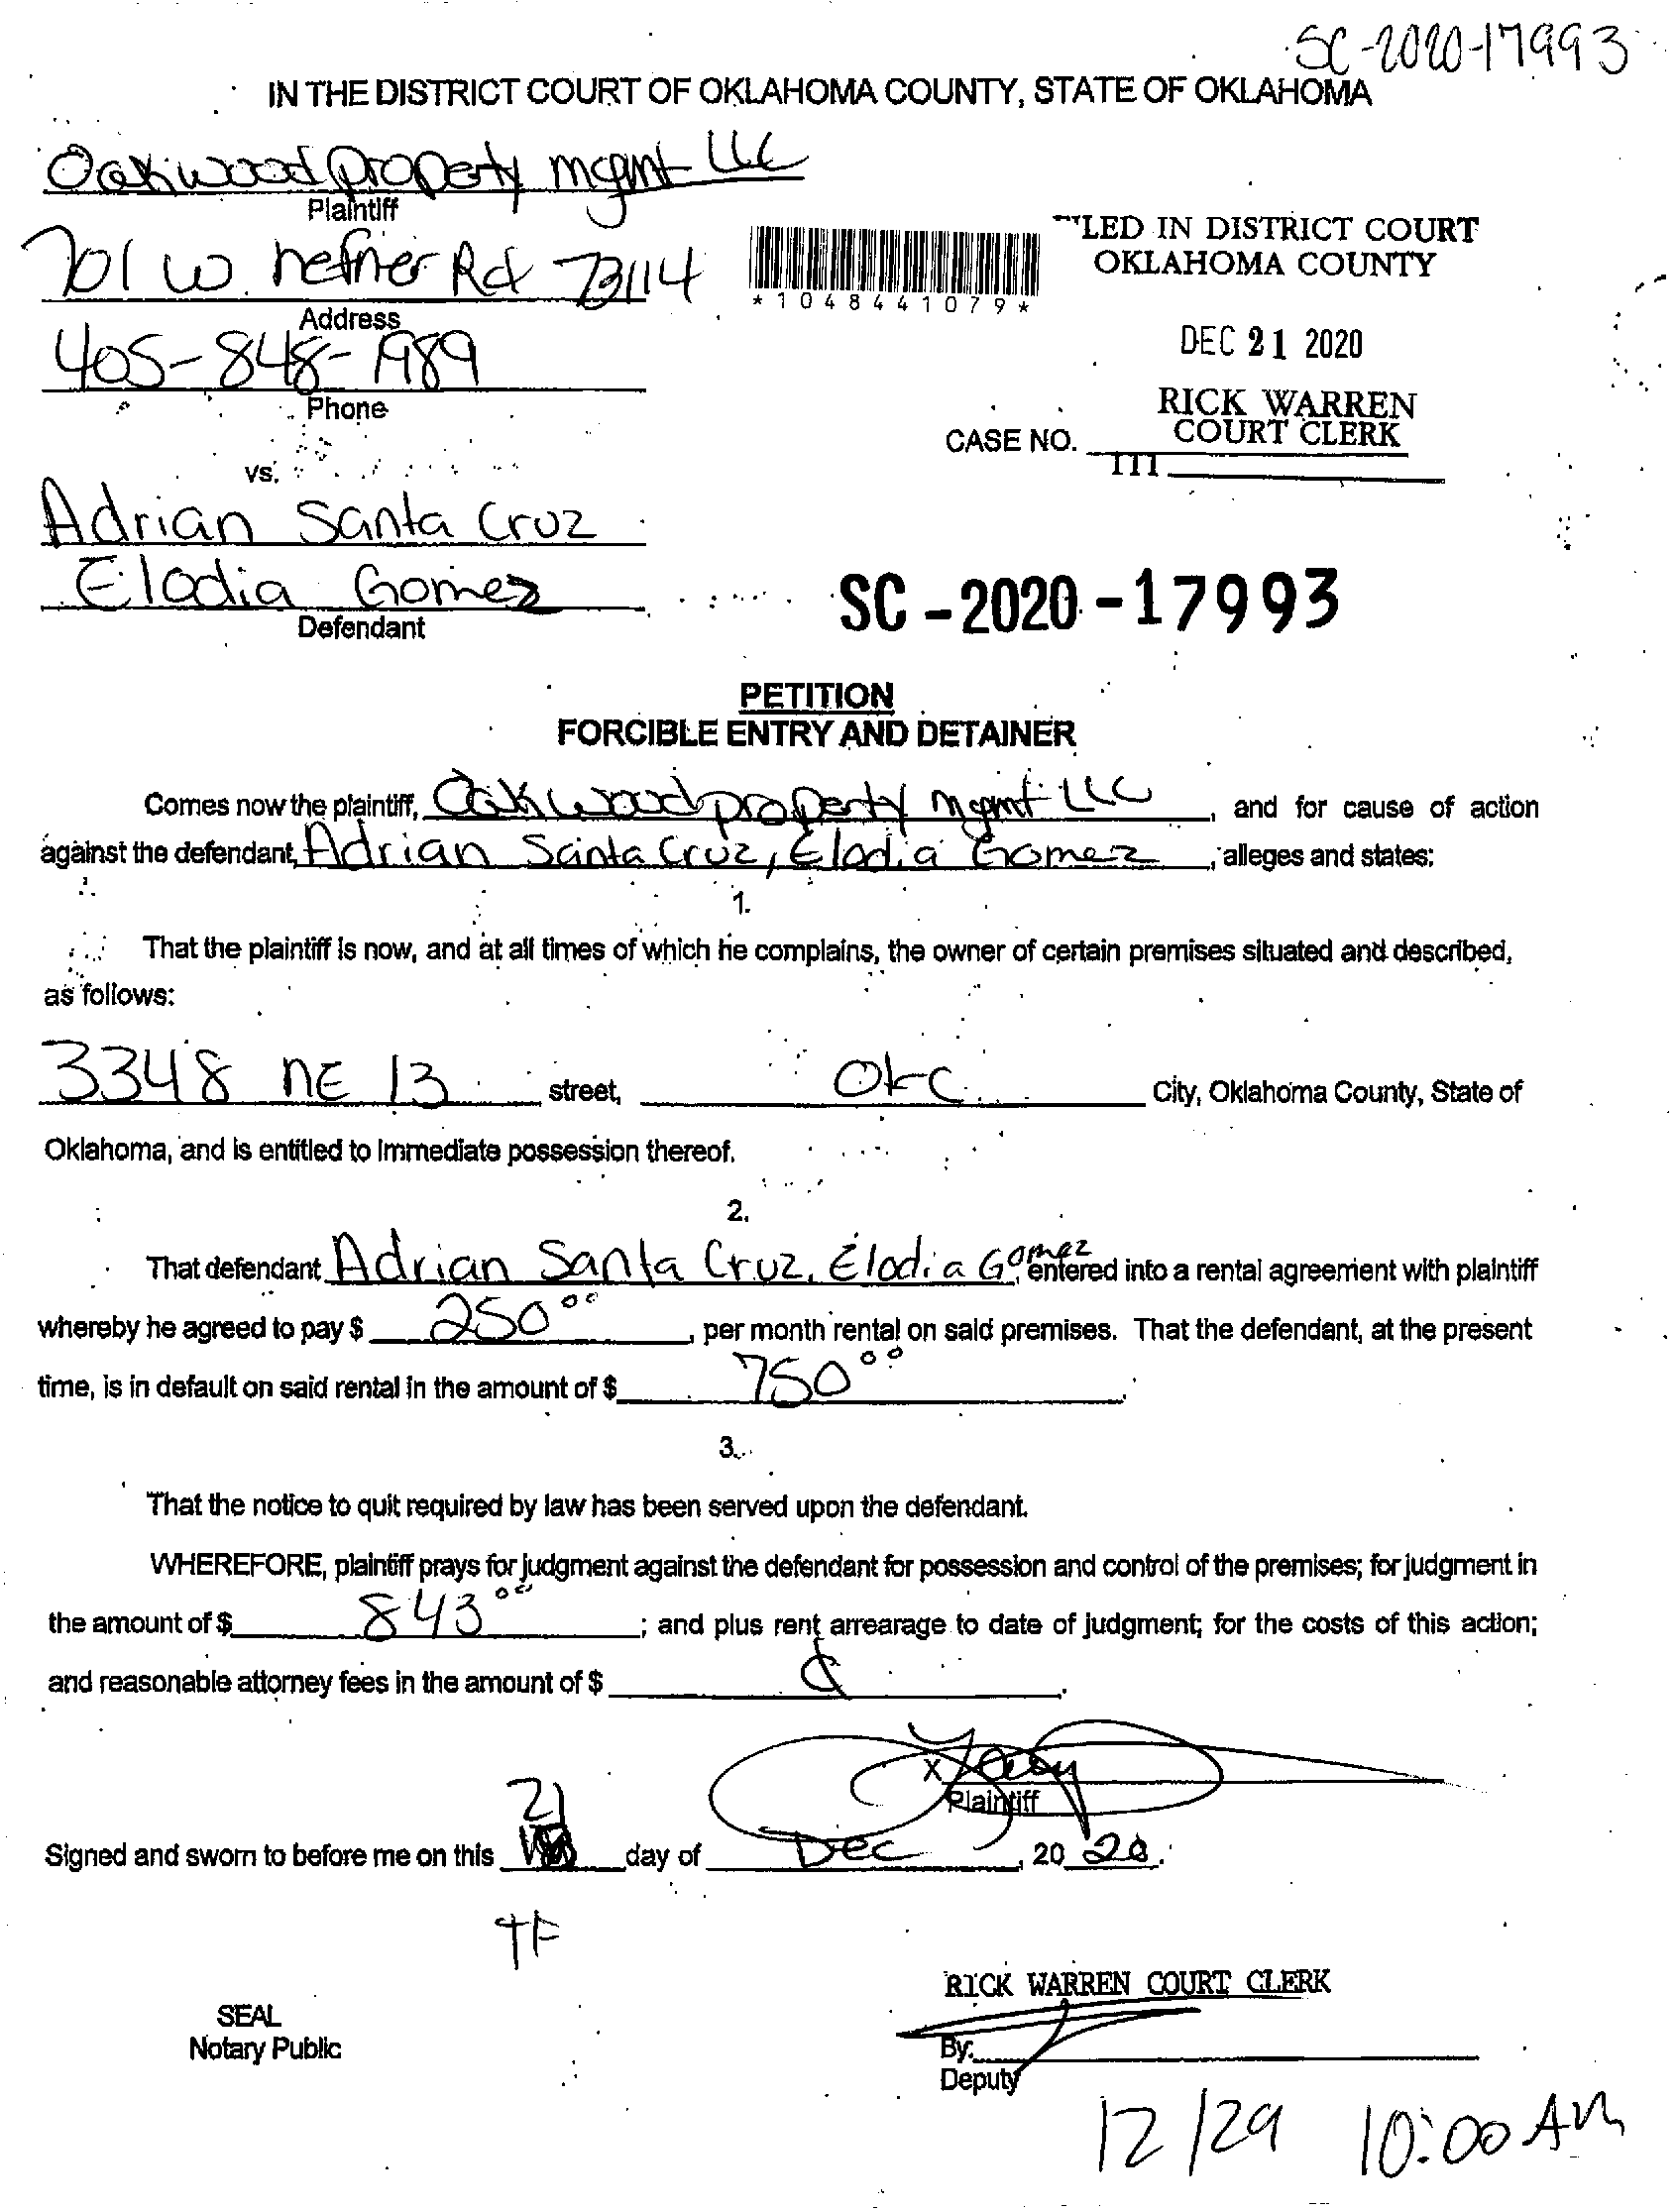 SC-2020-17993
IN THE DISTRICT COURT OF OKLAHOMA COUNTY, STATE OF OKLAHOMA
Oakwood property mgmt LLC
Plaintiff
701 W. hefner Rd 73114
Address
405-848-1989
Phone
*1048441079*
LED IN DISTRICT COURT
OKLAHOMA COUNTY
DEC 21 2020
RICK WARREN
COURT CLERK
CASE NO.
111
vs.
Adrian Santa Cruz
Elodia Gomez
Defendant
SC-2020-17993
PETITION
FORCIBLE ENTRY AND DETAINER
Comes now the plaintiff, Oakwood property mgmt LLC, and for cause of action
against the defendant, Adrian Santa Cruz, Elodia Gomez, alleges and states:
1.
That the plaintiff is now, and at all times of which he complains, the owner of certain premises situated and described,
as follows:
3348 NE 13 street, OKC City, Oklahoma County, State of
Oklahoma, and is entitled to immediate possession thereof.
2.
That defendant Adrian Santa Cruz, Elodia Gomez, entered into a rental agreement with plaintiff
whereby he agreed to pay $ 250 00, per month rental on said premises. That the defendant, at the present
time, is in default on said rental in the amount of $ 750 00.
3.
That the notice to quit required by law has been served upon the defendant.
WHEREFORE, plaintiff prays for judgment against the defendant for possession and control of the premises; for judgment in
the amount of $ 843 00; and plus rent arrearage to date of judgment; for the costs of this action;
and reasonable attorney fees in the amount of $
X
Plaintiff
21
Signed and sworn to before me on this day of Dec, 20 20.
TF
RICK WARREN COURT CLERK
SEAL
Notary Public
By:
Deputy
12/29 10:00 AM